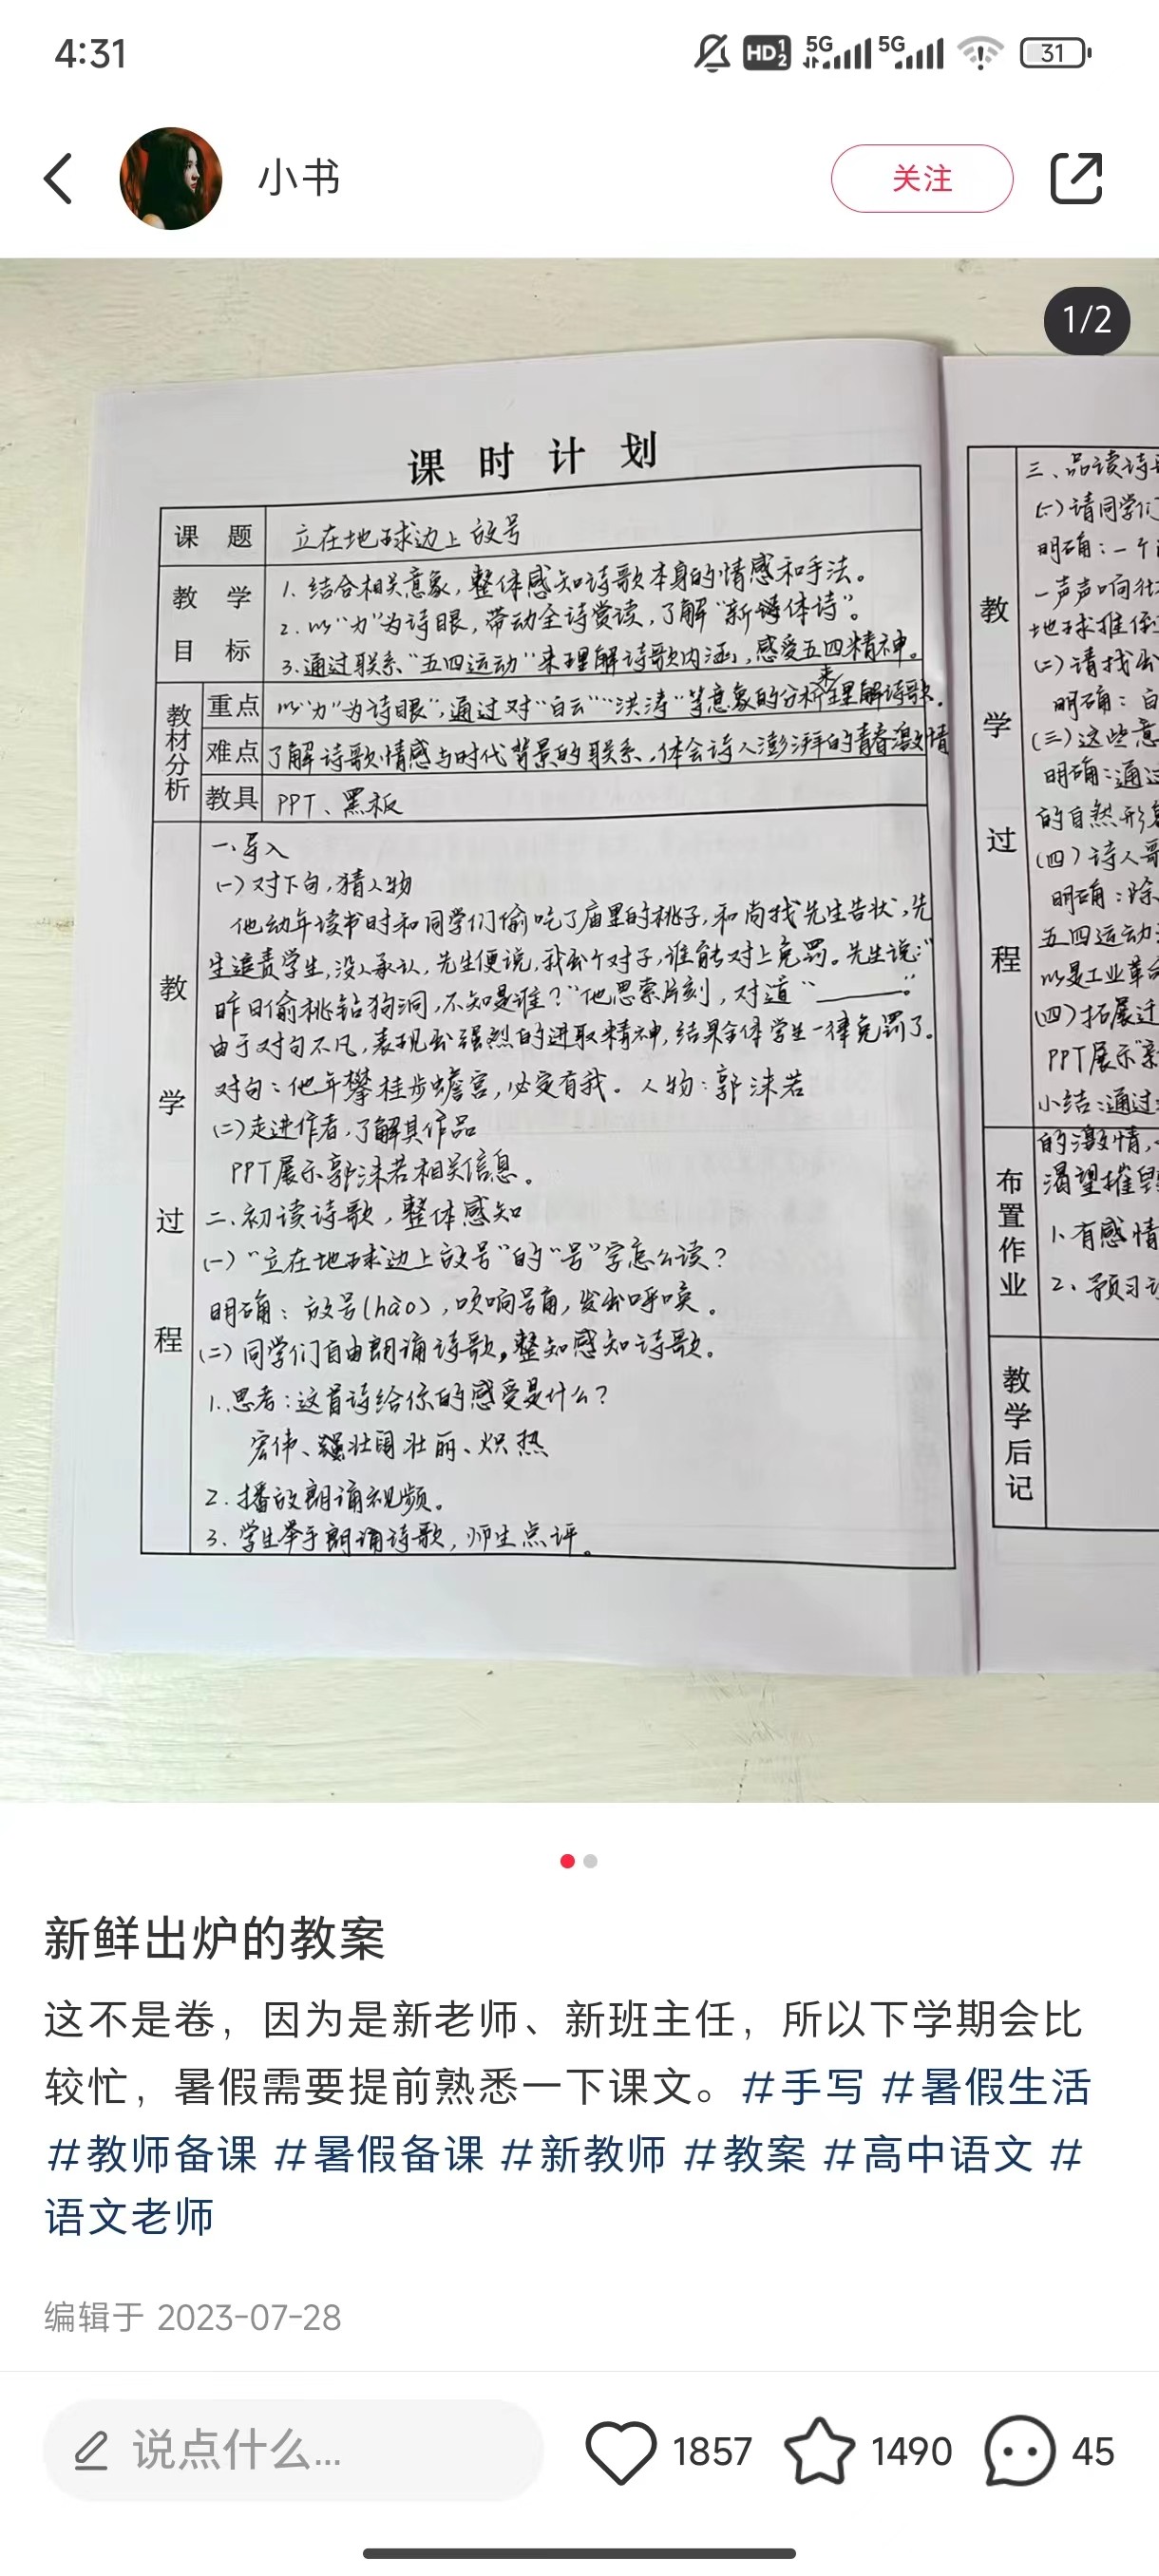 4:31
HD 1 2
5G
5G
31
小书
关注
1/2
课时计划
课题
立在地球边上放号
教学目标
1. 结合相关意象，整体感知诗歌本身的情感和手法。
2. 以“力”为诗眼，带动全诗赏读，了解“新诗体诗”。
3. 通过联系“五四运动”来理解诗歌内涵，感受五四精神。
教材分析
重点
以“力”为诗眼”，通过对“白云”“洪涛”等意象的分析来理解诗歌。
难点
了解诗歌情感与时代背景的联系，体会诗人澎湃的青春激情
教具
PPT、黑板
教学过程
一、导入
(一)对下句，猜人物
他幼年读书时和同学们偷吃了庙里的桃子，和尚找先生告状，先
生追责学生，没人承认，先生便说，我出个对子，谁能对上免罚。先生说：“
昨日偷桃钻狗洞，不知是谁？”他思索片刻，对道“______。”
由于对句不凡，表现出强烈的进取精神，结果全体学生一律免罚了。
对句：他年攀桂步蟾宫，必定有我。人物：郭沫若
(二)走进作者，了解其作品
PPT展示郭沫若相关信息。
二、初读诗歌，整体感知
(一)“立在地球边上放号”的“号”字怎么读？
明确：放号(hào)，吹响号角，发出呼唤。
(二)同学们自由朗诵诗歌，整知感知诗歌。
1.思考：这首诗给你的感受是什么？
宏伟、壮阔壮丽、炽热
2.播放朗诵视频。
3.学生举手朗诵诗歌，师生点评。
教学过程
三、品读诗
(一)请同学们
明确：一个
一声声响彻
地球推倒
(二)请找出
明确：白
(三)这些意
明确：通过
的自然形象
(四)诗人哥
明确：除
五四运动
以是工业革命
(四)拓展迁
PPT展示“新
小结：通过
的激情，
渴望摧毁
布置作业
1.有感情
2、预习
教学后记
新鲜出炉的教案
这不是卷，因为是新老师、新班主任，所以下学期会比
较忙，暑假需要提前熟悉一下课文。#手写 #暑假生活
#教师备课 #暑假备课 #新教师 #教案 #高中语文 #
语文老师
编辑于 2023-07-28
说点什么...
1857
1490
45